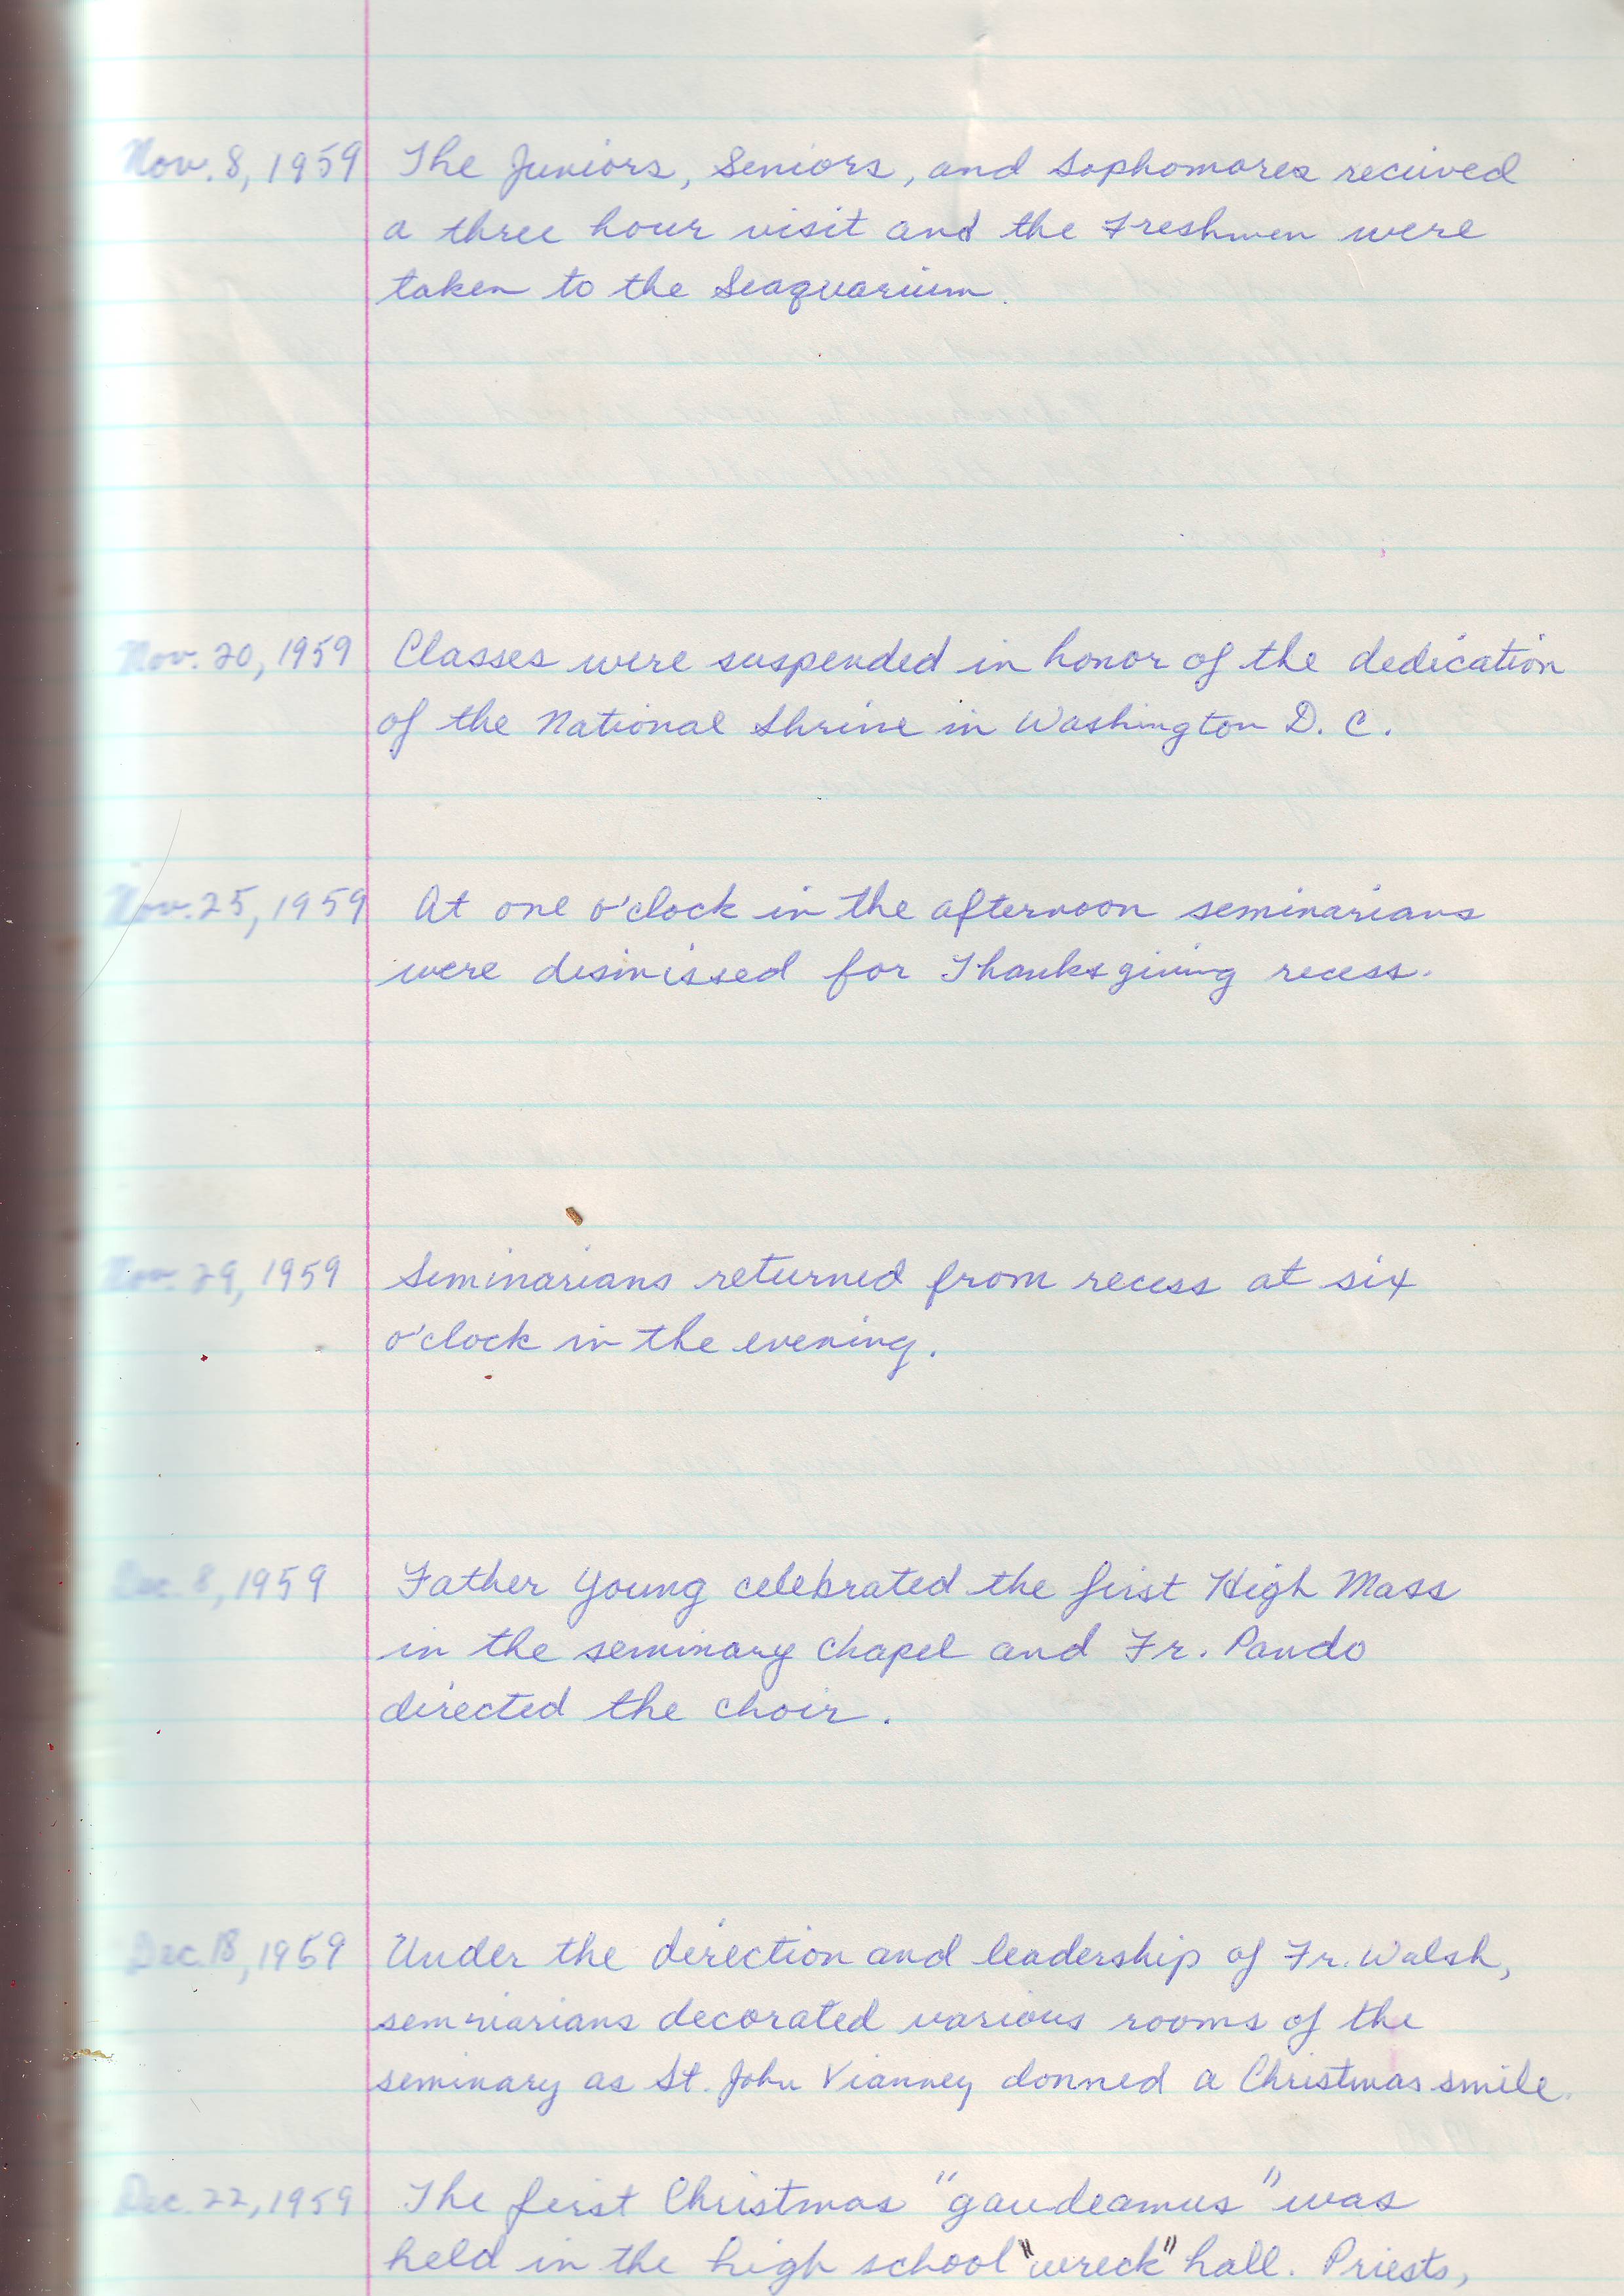 Nov. 8, 1959 The Juniors, Seniors, and Sophomores recieved
a three hour visit and the Freshmen were
taken to the Seaquarium.
Nov. 20, 1959 Classes were suspended in honor of the dedication
of the National Shrine in Washington D. C.
Nov. 25, 1959 At one o'clock in the afternoon seminarians
were dismissed for Thanksgiving recess.
Nov. 29, 1959 Seminarians returned from recess at six
o'clock in the evening.
Dec. 8, 1959 Father Young celebrated the first High Mass
in the seminary chapel and Fr. Pando
directed the choir.
Dec. 18, 1959 Under the direction and leadership of Fr. Walsh,
seminarians decorated various rooms of the
seminary as St. John Vianney donned a Christmas smile.
Dec. 22, 1959 The first Christmas "gaudeamus" was
held in the high school "wreck" hall. Priests,